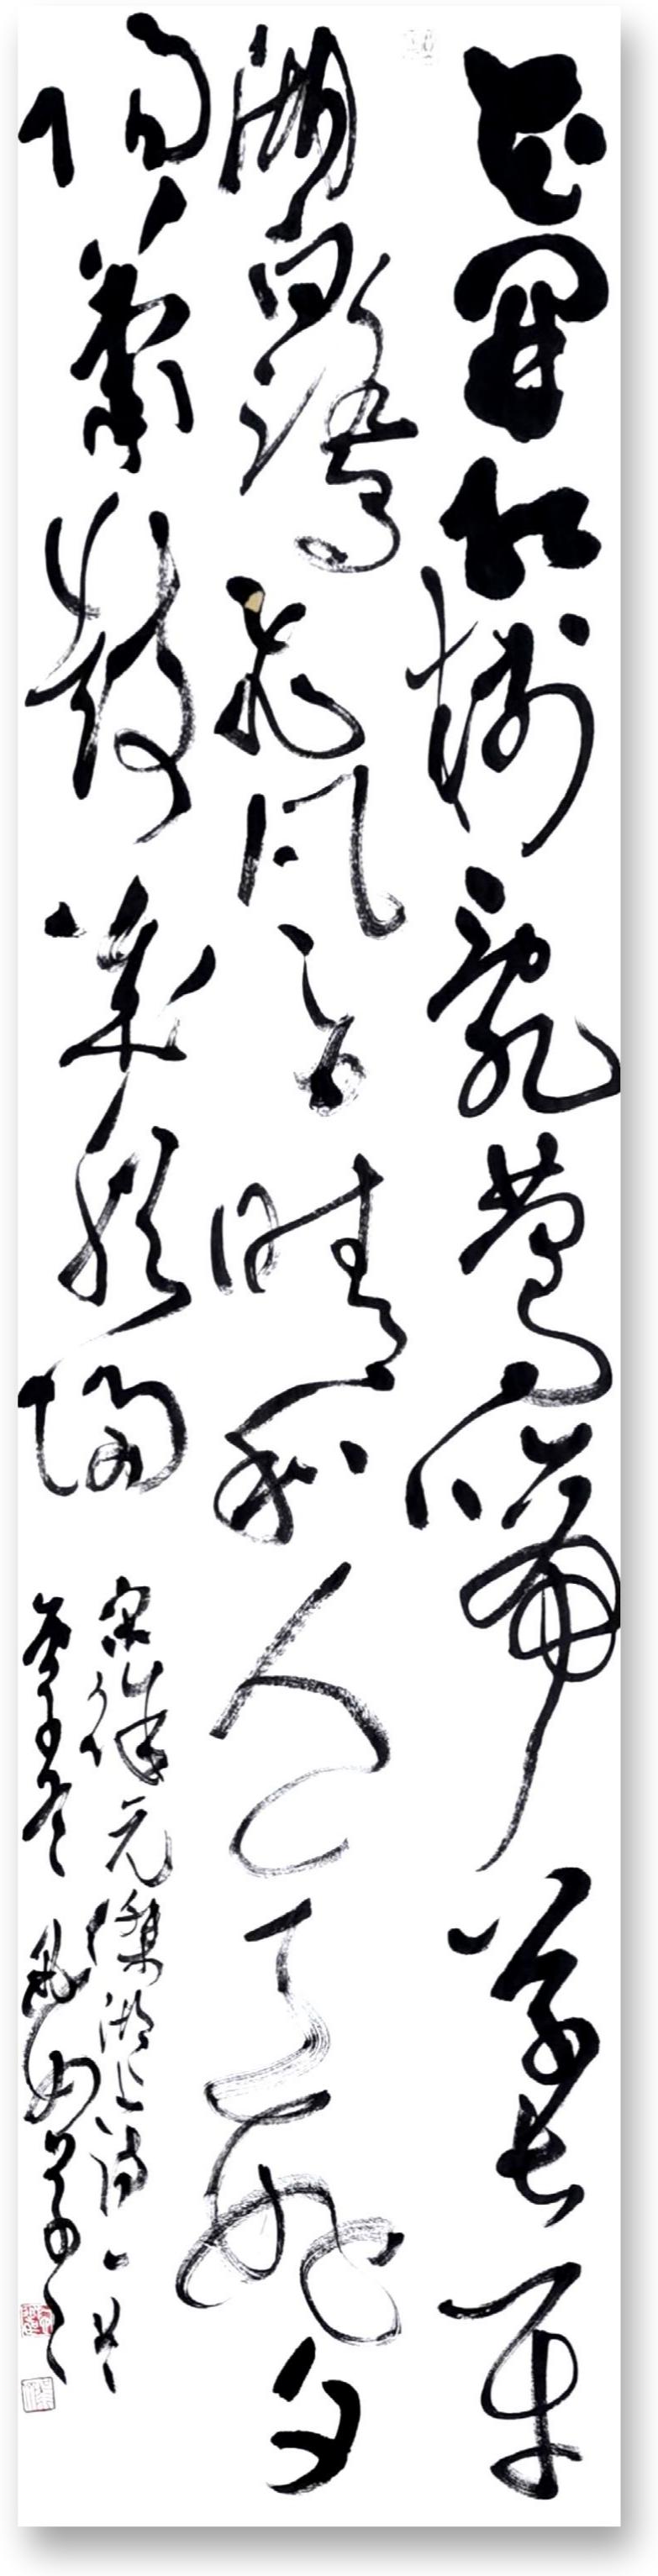 花開紅樹亂鶯啼草長平
湖白鷺飛風日晴和人意好夕
陽簫鼓幾船歸
宋徐元傑湖上詩一首